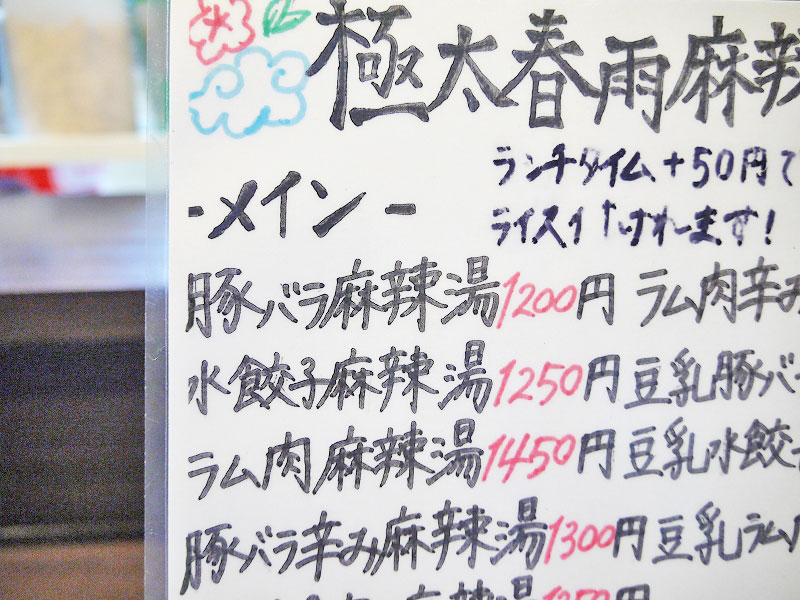 極太春雨麻辣
ランチタイム+50円で
ライス付けれます!
-メイン-
豚バラ麻辣湯1200円 ラム肉辛み
水餃子麻辣湯1250円 豆乳豚バ
ラム肉麻辣湯1450円 豆乳水餃子
豚バラ辛み麻辣湯1300円 豆乳ラム
麻辣湯1350円